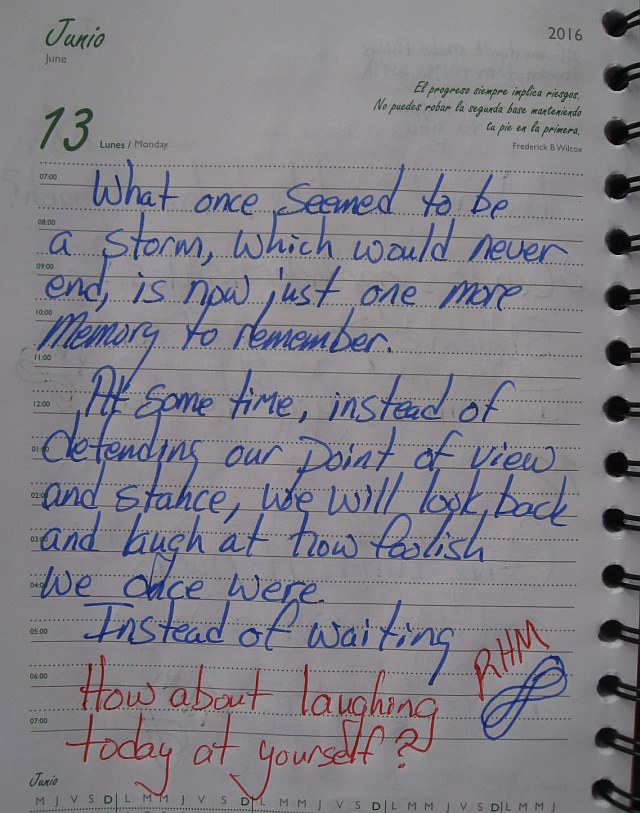 Junio
June
2016
El progreso siempre implica riesgos.
No puedes robar la segunda base manteniendo
tu pie en la primera.
Frederick B Wilcox
13 Lunes / Monday
07:00
What once seemed to be
08:00
a storm, which would never
09:00
end, is now just one more
10:00
memory to remember.
11:00
12:00
At some time, instead of
01:00
defending our point of view
02:00
and stance, we will look back
03:00
and laugh at how foolish
04:00
we once were.
05:00
Instead of waiting
RHM
06:00
How about laughing
07:00
today at yourself?
Junio
M J V S D L M M J V S D L M M J V S D L M M J V S D L M M J